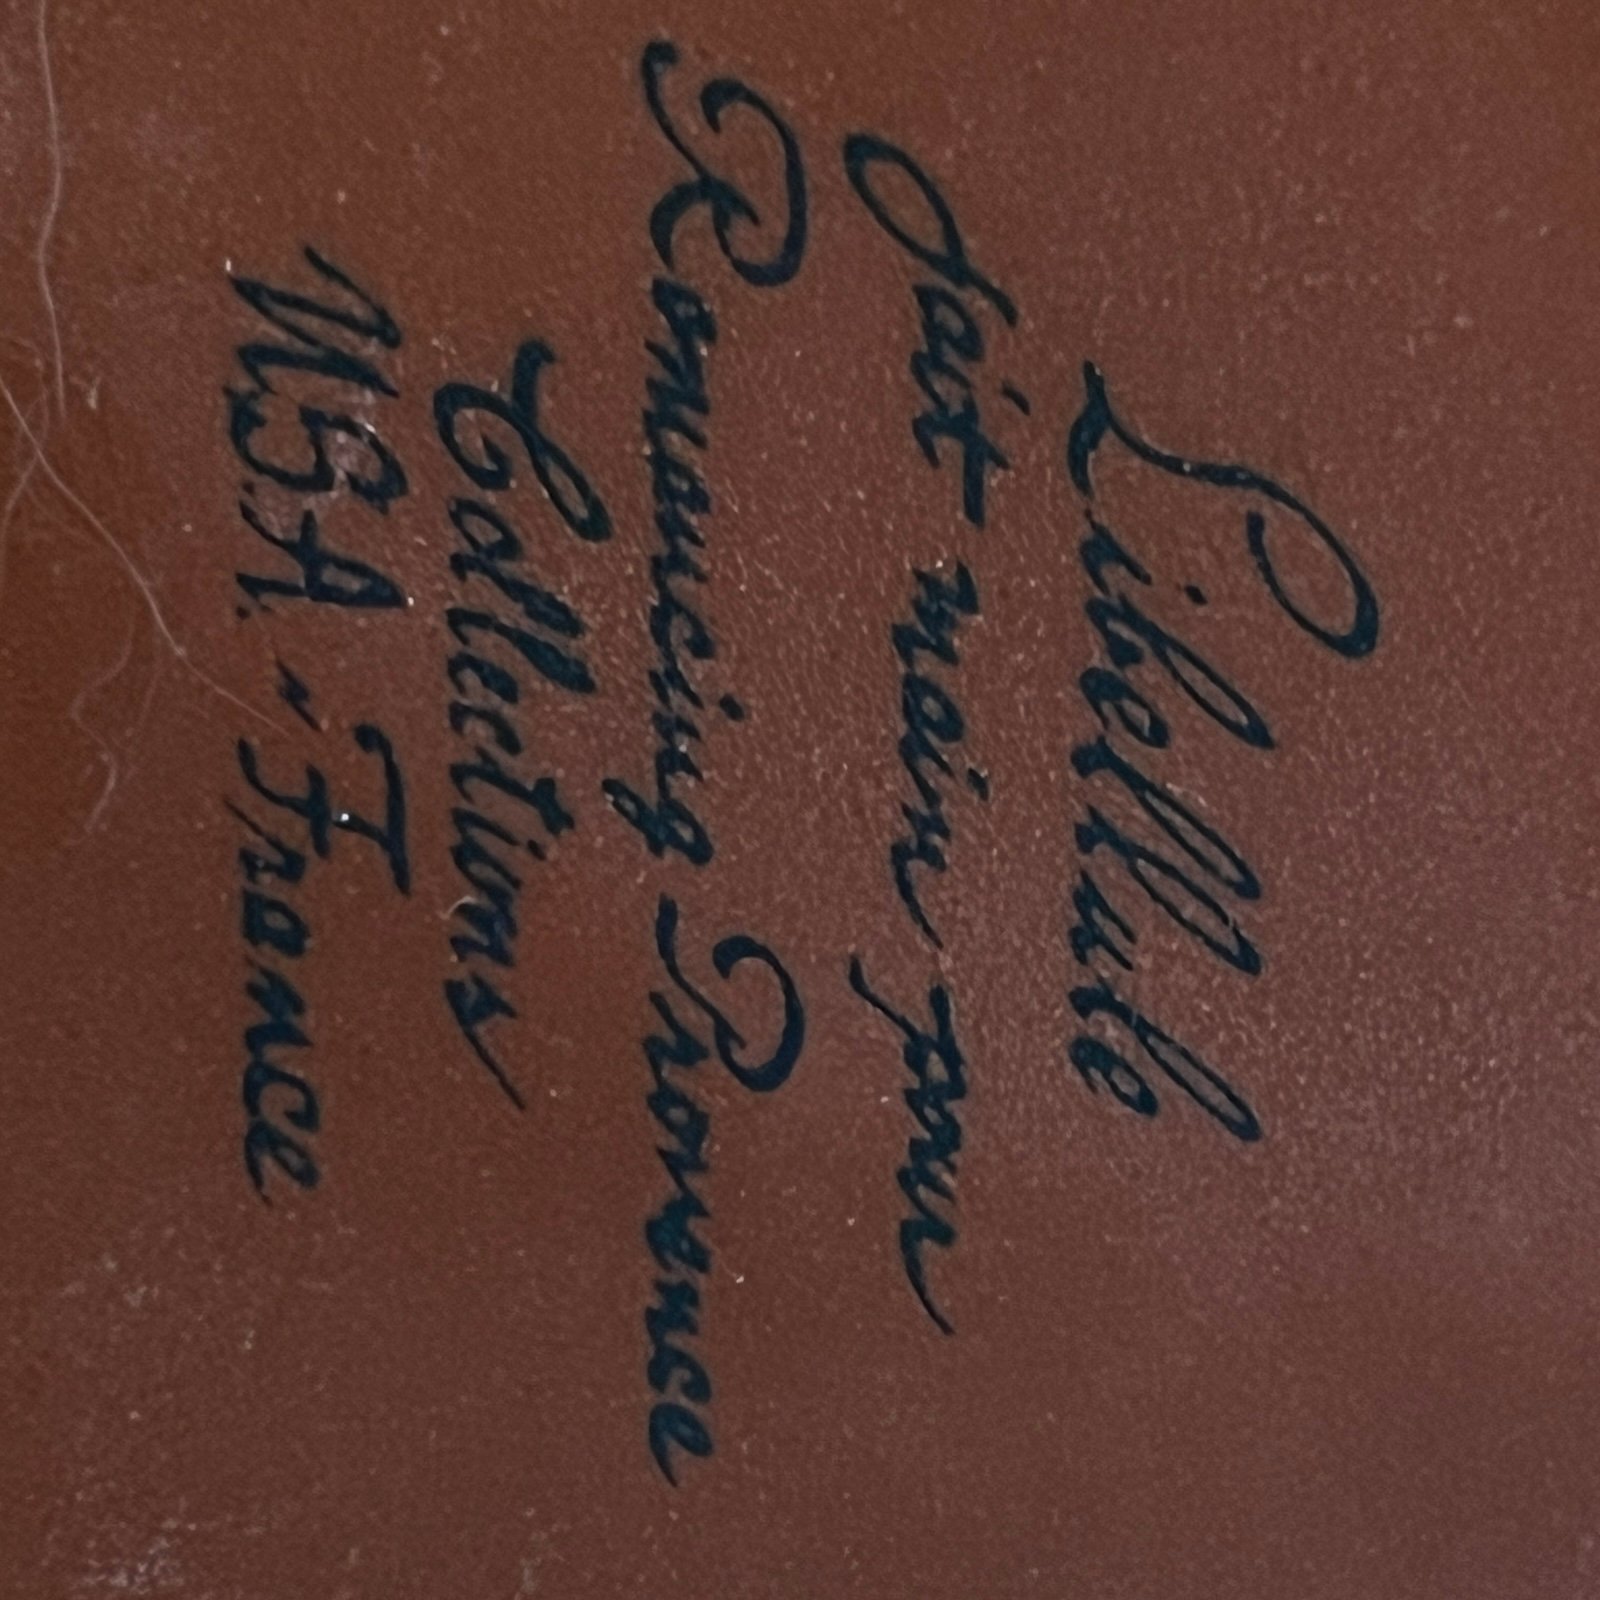 Libellule
Fait main pour
Romancing Provence
Collections
M.B.A. - France